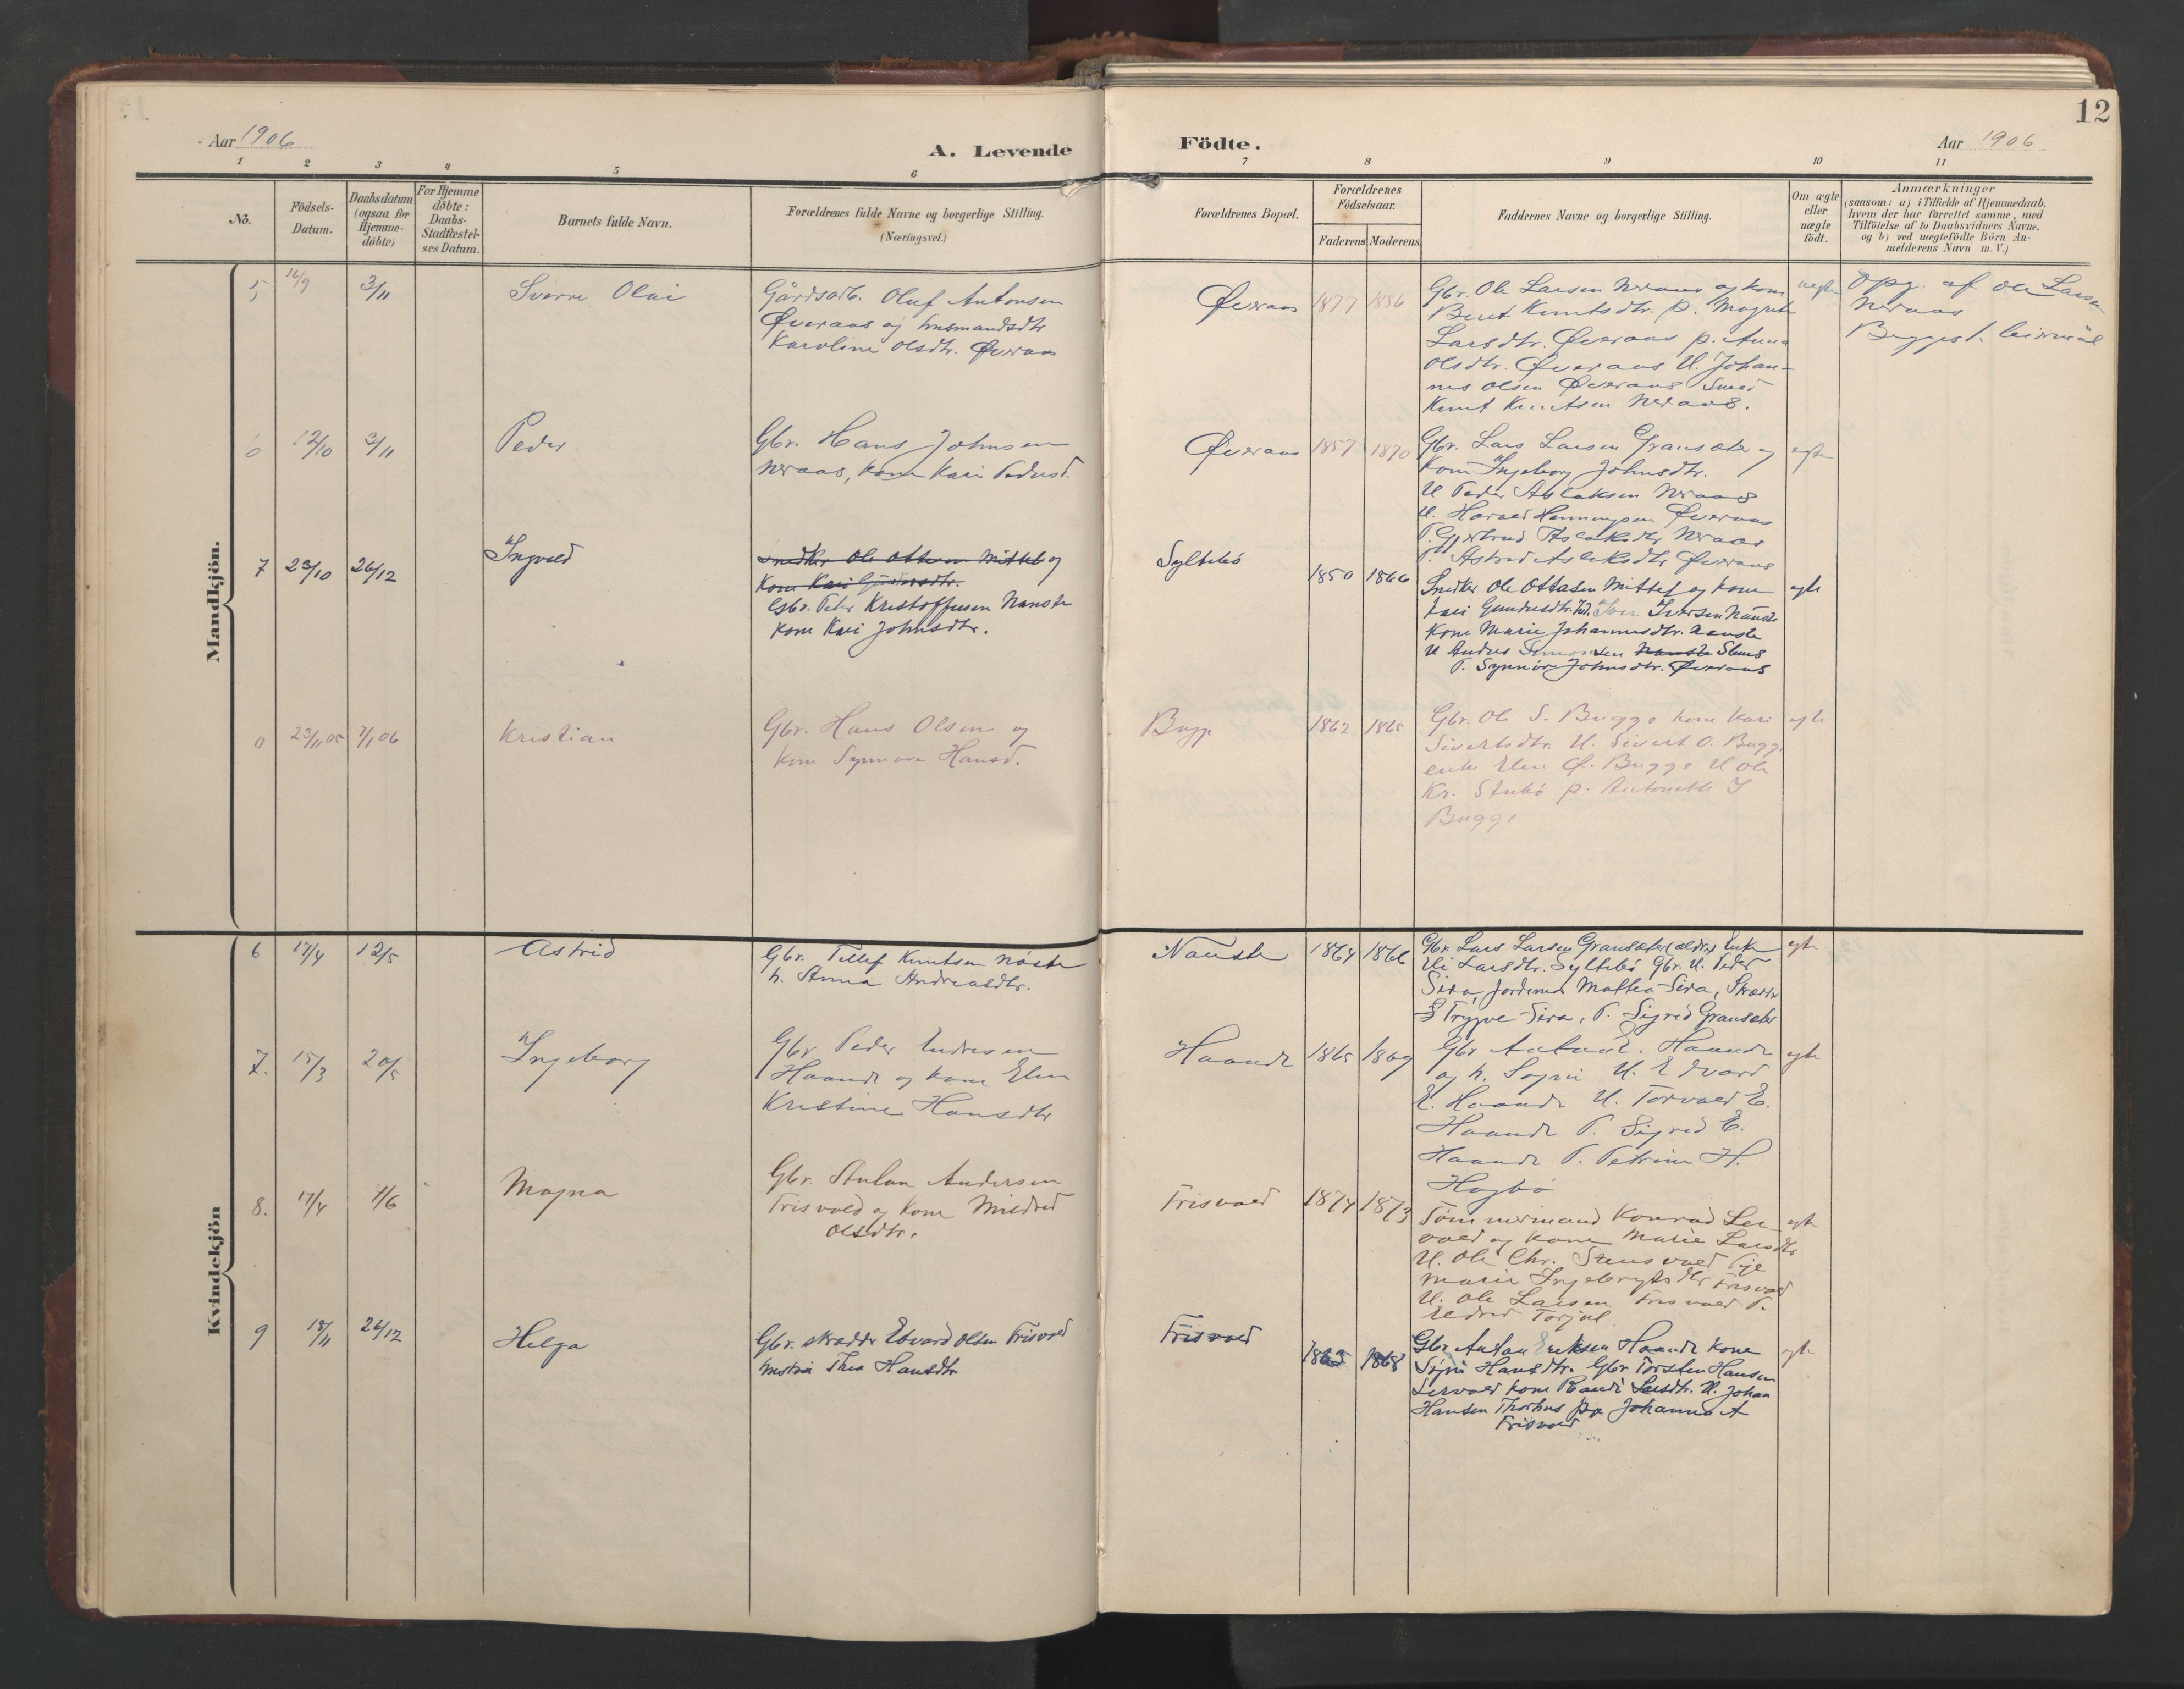 12
Aar 1906
A. Levende Födte.
Aar 1906
1 2 3 4 5 6 7 8 9 10 11
Nö.
Födsels-
Datum.
Daabsdatum
(ogsaa for
Hjemme-
döbte)
For Hjemme
döbte:
Daabs-
Stadfæstel-
ses Datum.
Barnets fulde Navn.
Forældrenes fulde Navne og borgerlige Stilling.
(Næringsvei.)
Forældrenes Bopæl.
Forældrenes
Födselsaar.
Faderens
Moderens
Faddernes Navne og borgerlige Stilling.
Om ægte
eller
uægte
födt.
Anmærkninger
(saasom: a) i Tilfælde af Hjemmedaab.
hvem der har forrettet samme, med
Tilföielse af to Daabsvidners Navne.
og b) ved uægtefödte Börn An-
melderens Navn m. V.)
Mandkjön.
5 16/9 3/11 Sverre Olai
Gårdsarb. Oluf Antonsen
Øveraas og husmandsdtr
Karoline Olsdtr. Øveraas
Øveraas 1877 1886
Gbr. Ole Larsen Neraas og kone
Beret Knutsdtr. p. Magrete
Larsdtr. Øveraas p. Anna
Olsdtr. Øveraas U. Johan-
nes Olsen Øveraas
Knut Knutsen Neraas.
uegte
Opg. af Ole Larsen
Neraas
Begges 1. leirmål
6 12/10 3/11 Peder
Gbr. Hans Johnsen
Neraas, kone Kari Pedersd.
Øveraas 1857 1870
Gbr. Lars Larsen Gransæter og
kone Ingeborg Johnsdtr.
U Peder Aslaksen Neraas
U. Harald Henningsen Øveraas
P. Gjertrud Aslaksdtr Neraas
P. Astrid Aslaksdtr Øveraas
egte
7 23/10 26/12 Ingvald
Snedker Ole Ottesen Mittet og
Kone Kari Gundersdtr.
Gbr. Peter Kristoffersen Nauste
kone Kari Johnsdtr.
Syltebö 1850 1866
Snedker Ole Ottesen Mittet og kone
Kari Gundersdtr. Iver Iversen Nauste
Kone Marie Johannesdtr. Nauste
U Anders Simonsen Nauste
P. Synnöve Johnsdtr. Øveraas
egte
23/11 05 7/1 06 Kristian
Gbr. Hans Olsen og
kone Synnove Hansd.
Bugge 1862 1865
Gbr. Ole S. Bugge kone Kari
Sivertsdtr. U. Sivert O. Bugge
enke Elen O. Bugge U Ole
Kr. Stubö p. Antonette I
Bugge
egte
Kvindekjön
6 17/4 12/5 Astrid
Gbr. Tellef Knutsen Nöste
h. Anna Andreasdtr.
Nauste 1864 1866
Gbr. Lars Larsen Gransæter (ældre) Enke
Eli Larsdtr. Syltebö Gbr. U. Peder
Sira, Jordemor Mattea Sira, Skrædder
Trygve Sira, P. Sigrid Gransæter
egte
7. 15/3 20/5 Ingeborg
Gbr. Peder Endresen
Haande og kone Elen
Kristine Hansdtr
Haande 1865 1869
Gbr Anton E. Haande
og h. Sogni U. Edvard
E. Haande U. Torvald E.
Haande P. Sigrid E.
Haande P. Petrine H.
Hagbö
egte
8. 17/4 1/6 Magna
Gbr. Anton Andersen
Frisvold og kone Mildrid
Olsdtr.
Frisvold 1874 1873
Tömmermand Konrad Ler-
vold og kone Marie Larsdtr
U. Ole Chr. Stensvold Pige
Marie Ingebrigtsdtr Frisvold
U. Ole Larsen Frisvold P.
Torjul
egte
9 18/11 26/12 Helga
Gbr. skrædder Edvard Olsen Frisvold
hustru Thea Hansdtr
Frisvold 1865 1868
Gbr Anton Eriksen Haande kone
Sogni Hansdtr. Gbr Torsten Hansen
Lervold kone Randi Larsdtr. U. Johan
Hansen Thorhus Johanna A
Frisvold
egte